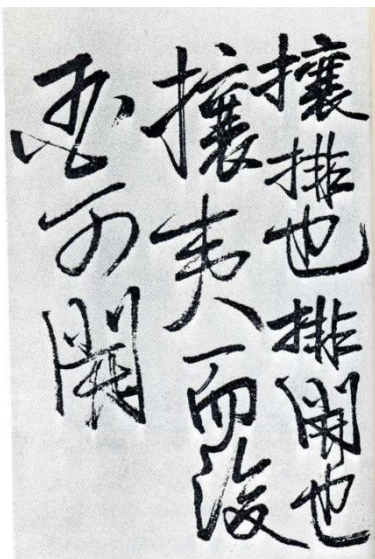 攘排也排開也
攘夷而後
国可開